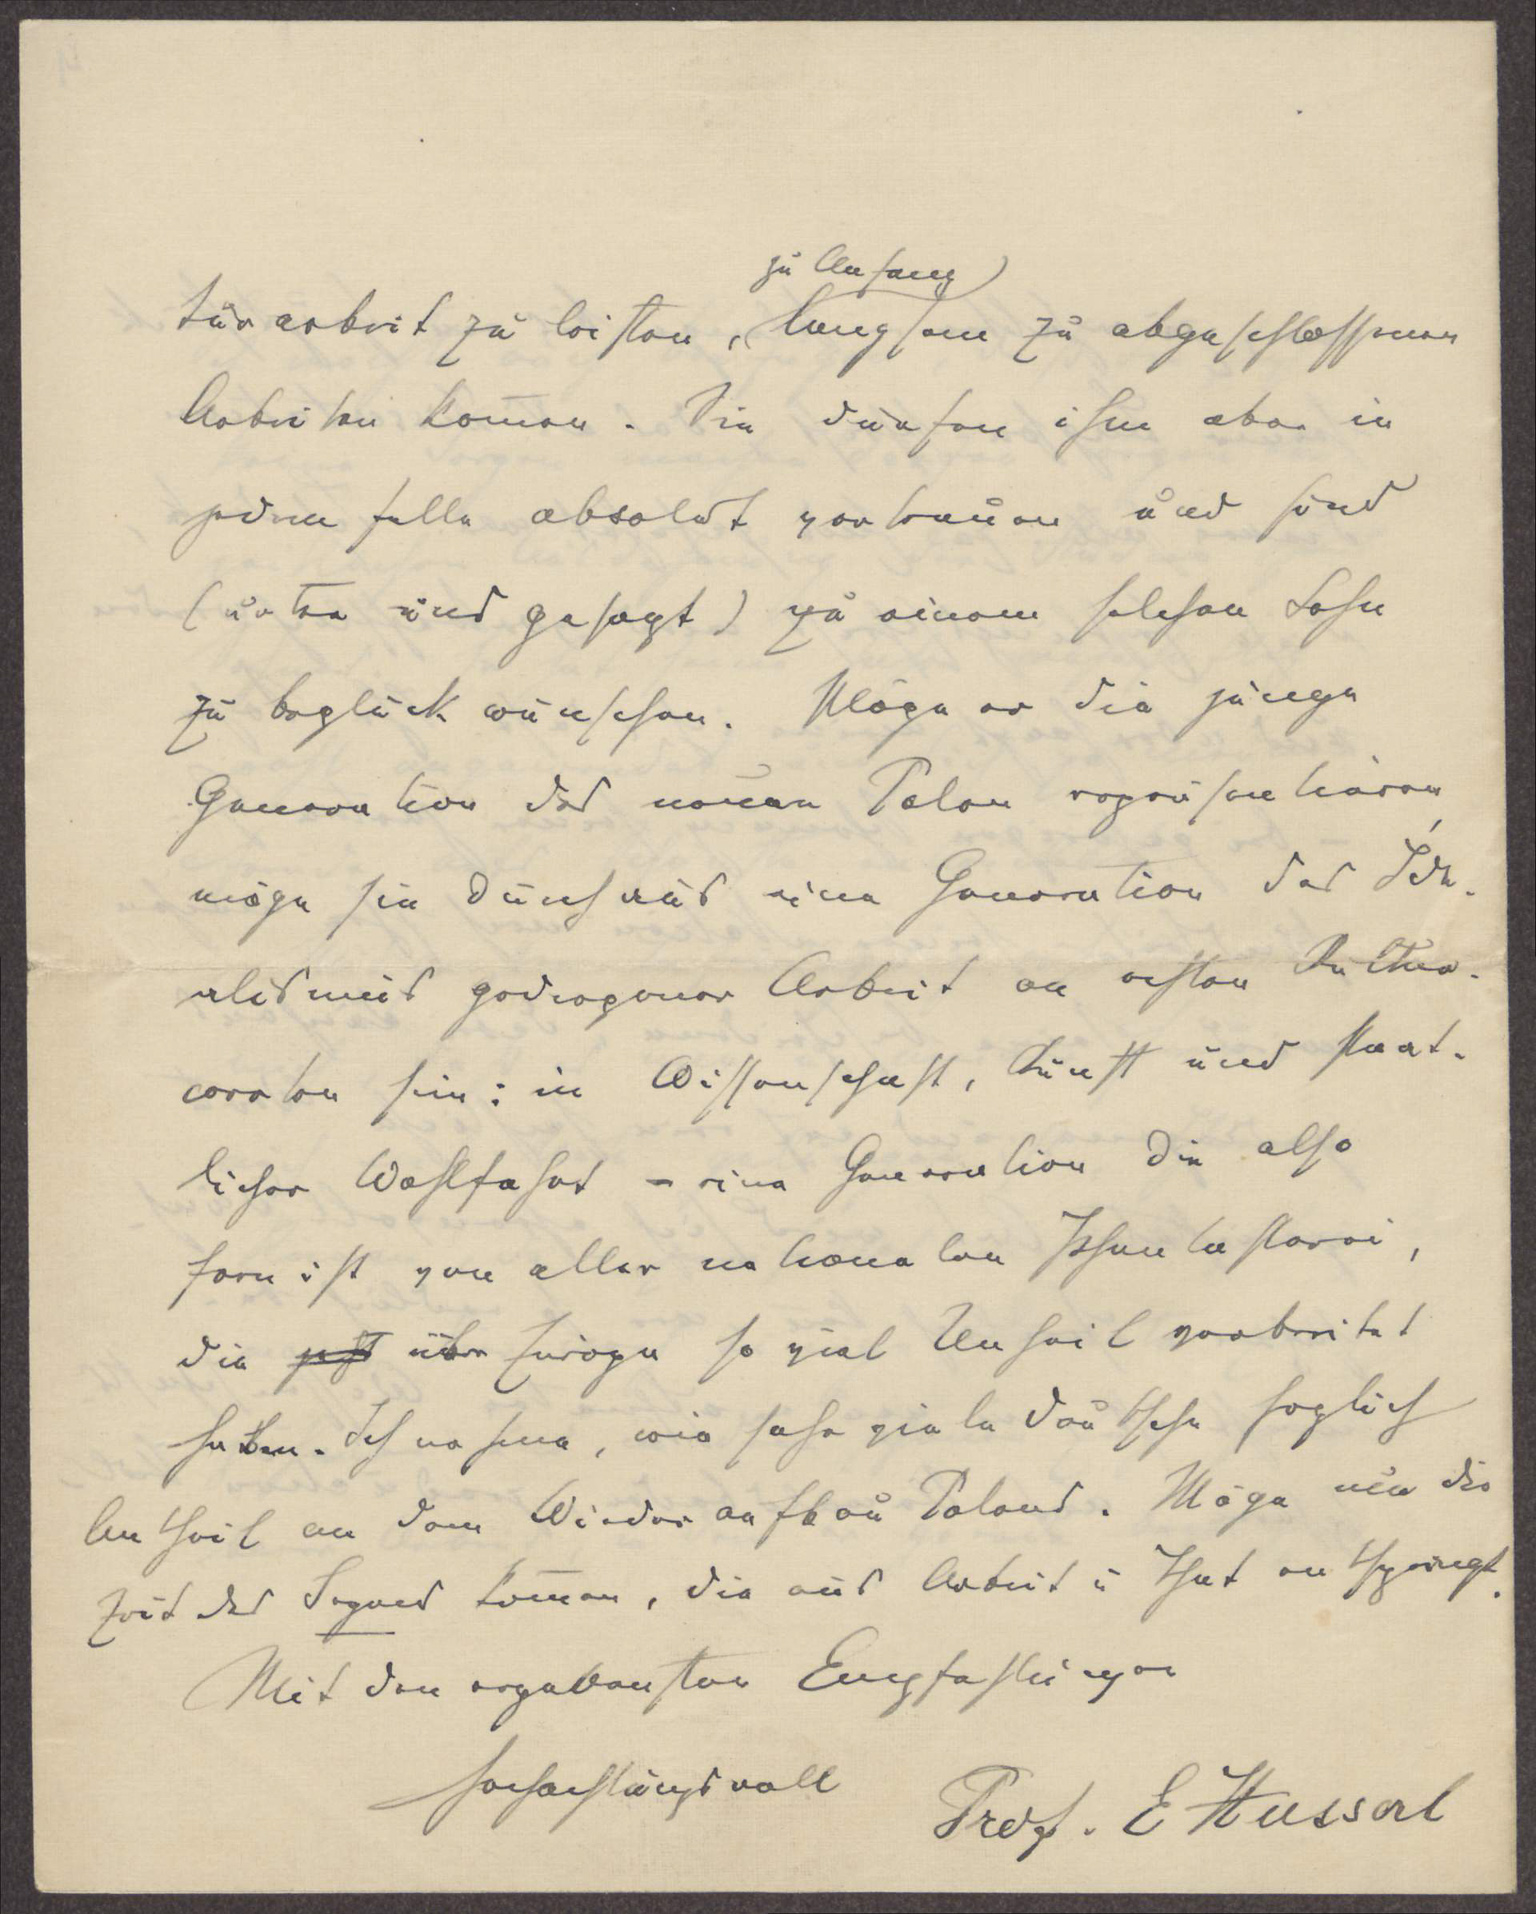 zu Anfang
turarbeit zu leisten, langsam zu abgeschlossenen
Arbeiten komen. Sie dürfen ihm aber in
jedem Falle absolut vertrauen und sind
(unter uns gesagt) zu einem solchen Sohn
zu beglückwünschen. Möge er die junge
Generation des neuen Polen repräsentieren,
möge sie durchaus eine Generation des Ide-
alismus gediegener Arbeit an echten Kultur-
werten sein: in Wissenschaft, Kunst und staat-
licher Wohlfahrt - eine Generation die also
fern ist von aller nationalen Phantasterei,
die jetzt über Europa so viel Unheil verbreitet
haben. Ich nehme, wie sehr viele Deutsche herzlich
Antheil an dem Wiederaufbau Polens. Möge nun die
Zeit des Segens komen, die aus Arbeit u That entspringt.
Mit den ergebensten Empfehlungen
hochachtungsvoll Prof. E Husserl